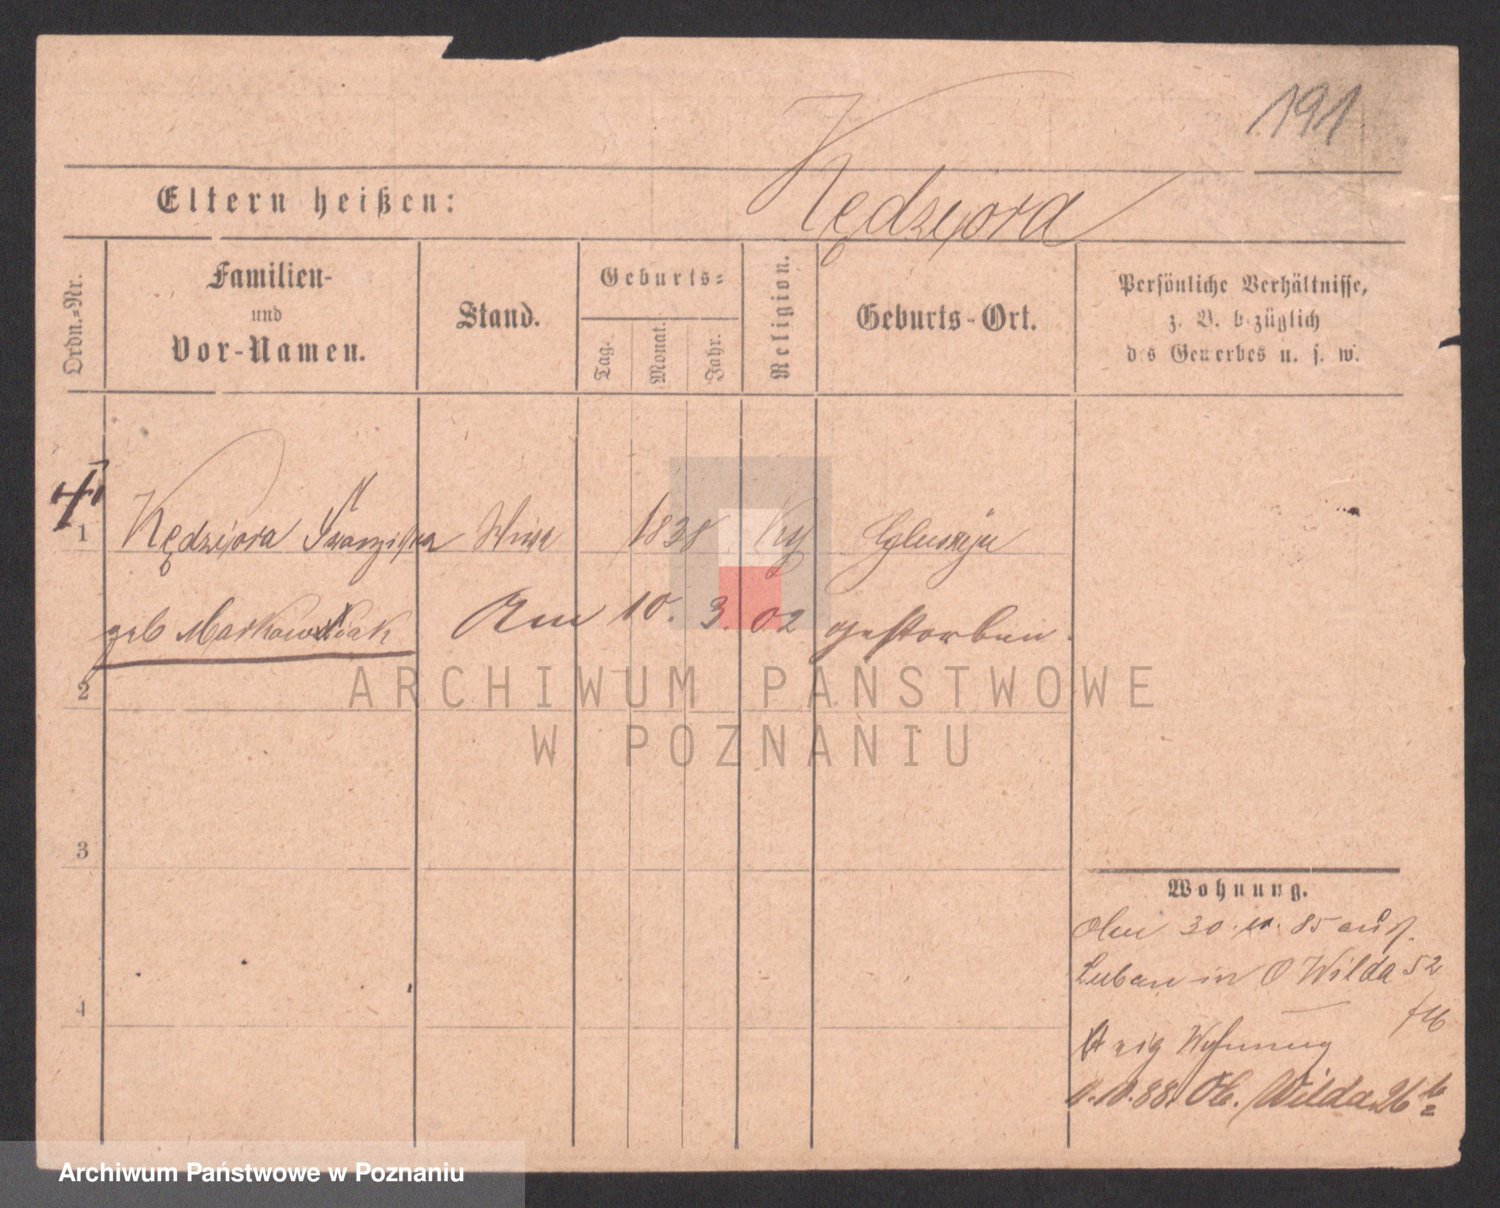 191
Kędziora
Eltern heißen:
Ordn.=Nr.
Familien-
und
Vor-Namen.
Stand.
Geburts=
Tag.
Monat.
Jahr.
Religion.
Geburts-Ort.
Persönliche Verhältnisse,
z. B. bezüglich
des Gewerbes u. s. w.
1 Kędziora Franziska 1838
geb Markowiak Am 10. 3. 02 gestorben.
2
ARCHIWUM PAŃSTWOWE
W POZNANIU
3
4
Wohnung.
30. 85 aus
Luban in O Wilda 52
Wohnung
88. Ob. Wilda 26
Archiwum Państwowe w Poznaniu